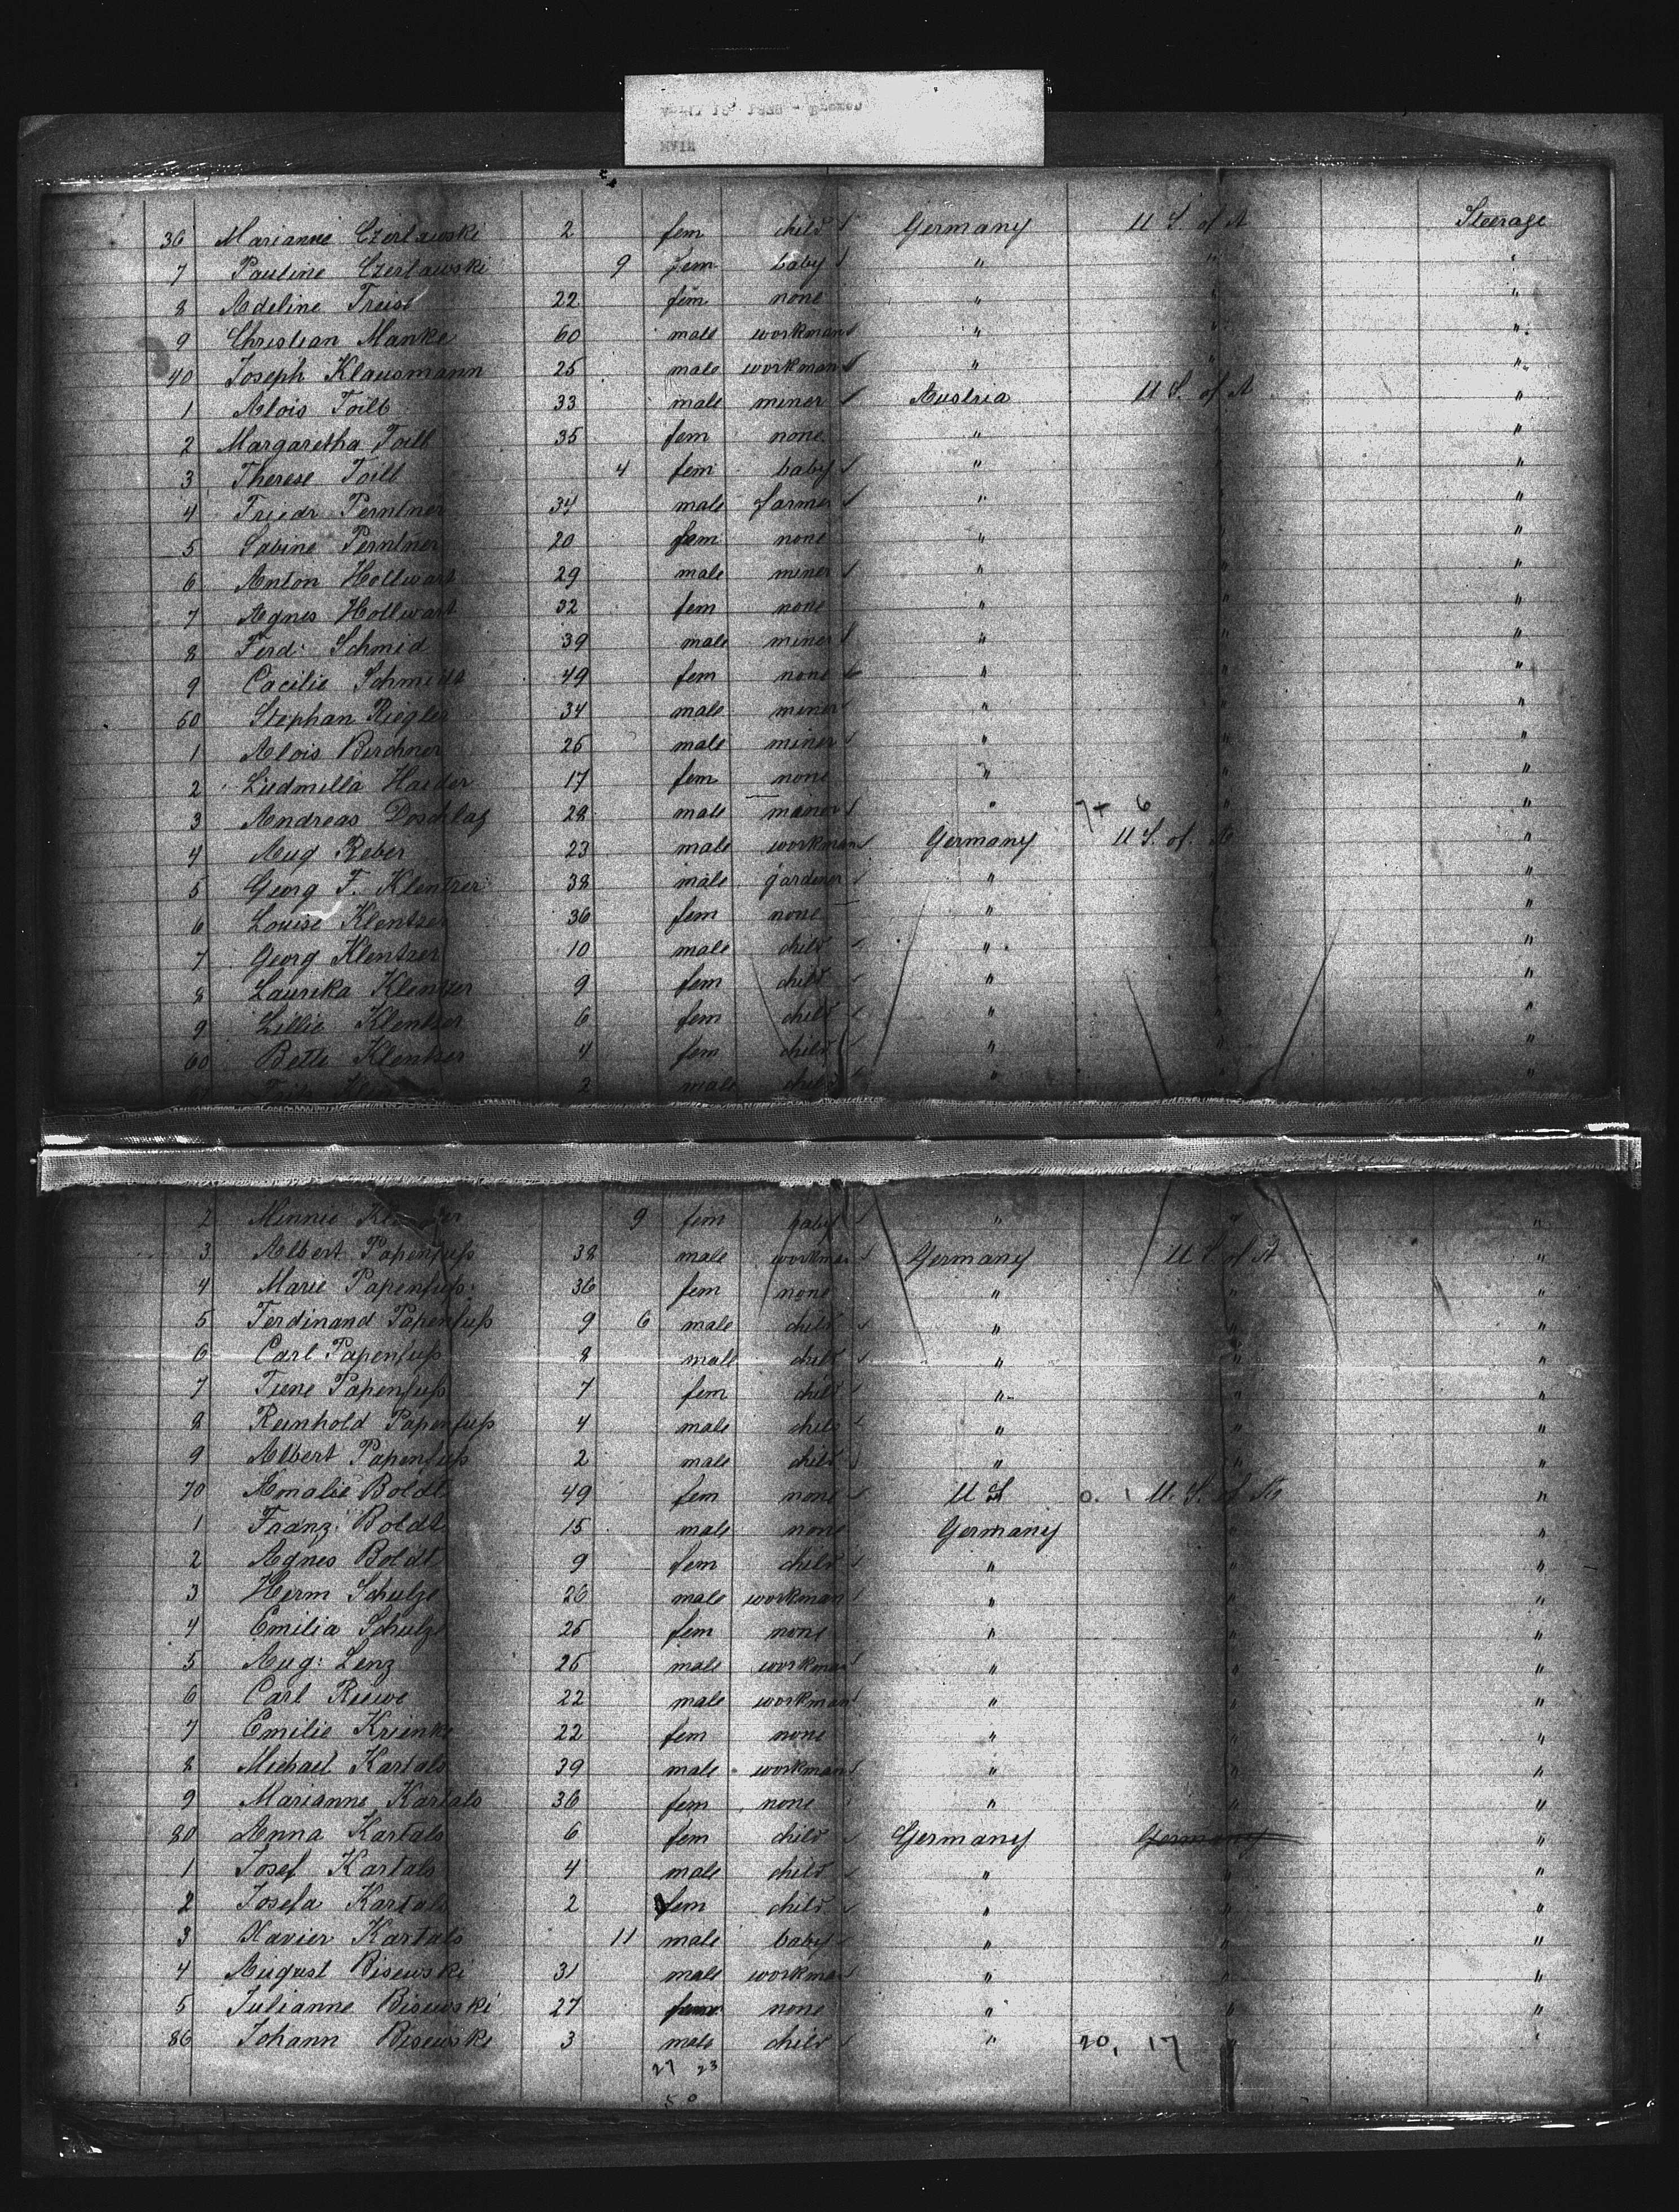 36 Marianne Czerlawski 2 fem child Germany U S. of A Steerage
7 Pauline Czerlawski 9 fem baby " " "
8 Adeline Treise 22 fem none " " "
9 Christian Manke 60 male workman " " "
40 Joseph Klausmann 25 male workman " " "
1 Alois Toilb 33 male miner Austria U S. of A "
2 Margaretha Toilb 35 fem none " "
3 Therese Toilb 4 fem baby " " "
4 Friedr Perntner 34 male farmer " " "
5 Sabine Perntner 20 fem none " " "
6 Anton Hollwart 29 male miner " " "
7 Agnes Hollwart 32 fem none " " "
8 Ferd: Schmid 39 male miner " " "
9 Cacilie Schmidt 49 fem none " " "
50 Stephan Riegler 34 male miner " " "
1 Alois Birchner 25 male miner " " "
2 Ludmilla Haider 17 fem none " " "
3 Andreas Doschlag 28 male miner " 7+ 6 " "
4 Aug Reber 23 male workman Germany U S. of. A "
5 Georg F. Klentzer 38 male gardener " " "
6 Louise Klentzer 36 fem none " " "
7 Georg Klentzer 10 male child " " "
8 Laurika Klentzer 9 fem child " " "
9 Lillie Klentzer 6 fem child " " "
60 Bette Klentzer 4 fem child " " "
2 male child " " "
2 Minnie 9 fem baby " " "
3 Albert Papenfuß 38 male workman Germany U S of A "
4 Marie Papenfuß 36 fem none " " "
5 Ferdinand Papenfuß 9 6 male child " " "
6 Carl Papenfuß 8 male child " " "
7 Tiene Papenfuß 7 fem child " " "
8 Reinhold Papenfuß 4 male child " " "
9 Albert Papenfuß 2 male child " " "
70 Amalie Boldt 49 fem none U S U. S. of A "
1 Franz Boldt 15 male none Germany "
2 Agnes Boldt 9 fem child " " "
3 Herm Schulze 26 male workman " " "
4 Emilia Schulze 25 fem none " " "
5 Aug: Lenz 25 male workman " " "
6 Carl Ruwe 22 male workman " " "
7 Emilie Krienke 22 fem none " " "
8 Michael Kartals 39 male workman " " "
9 Marianne Kartals 36 fem none " " "
80 Anna Kartals 6 fem child Germany Germany "
1 Josef Kartals 4 male child " " "
2 Josefa Kartals 2 fem child " " "
3 Xavier Kartals 11 male baby " " "
4 August Bisewski 31 male workman " " "
5 Julianne Bisewski 27 fem none " " "
86 Johann Bisewski 3 male child " 20, 17 " "
27 23
50